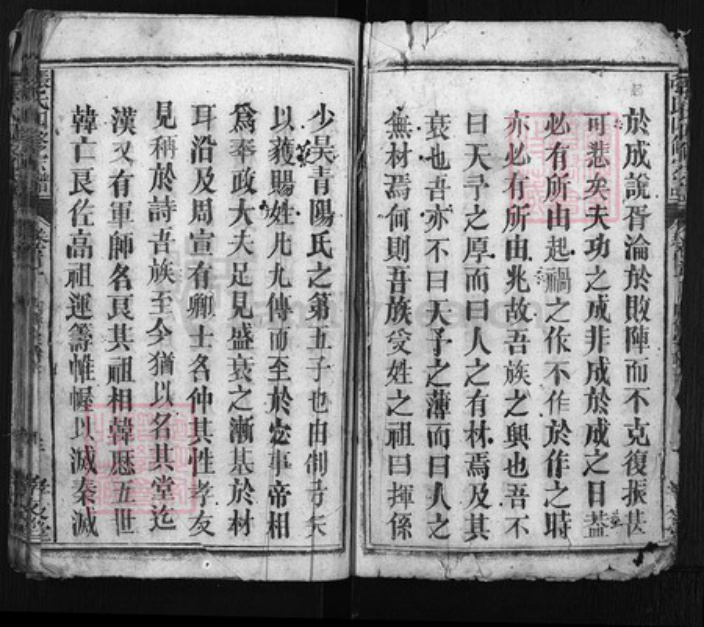 於成說胥淪於敗陣而不克復振甚
可悲矣夫功之成非成於成之日蓋
必有所由起禍之作不作於作之時
亦必有所由兆故吾族之興也吾不
曰天予之厚而曰人之有材焉及其
衰也吾亦不曰天予之薄而曰人之
無材焉何則吾族受姓之祖曰揮係
少吴青陽氏之第五子也由制弓矢
以獲賜姓凡九傳而至於 事帝相
爲奉政大夫足見盛衰之漸基於材
耳沿及周宣有卿士名仲其性孝友
見稱於詩吾族至今猶以名其堂迄
漢又有軍師名良其祖相韓歷五世
韓亡良佐高祖運籌帷幄以滅秦滅